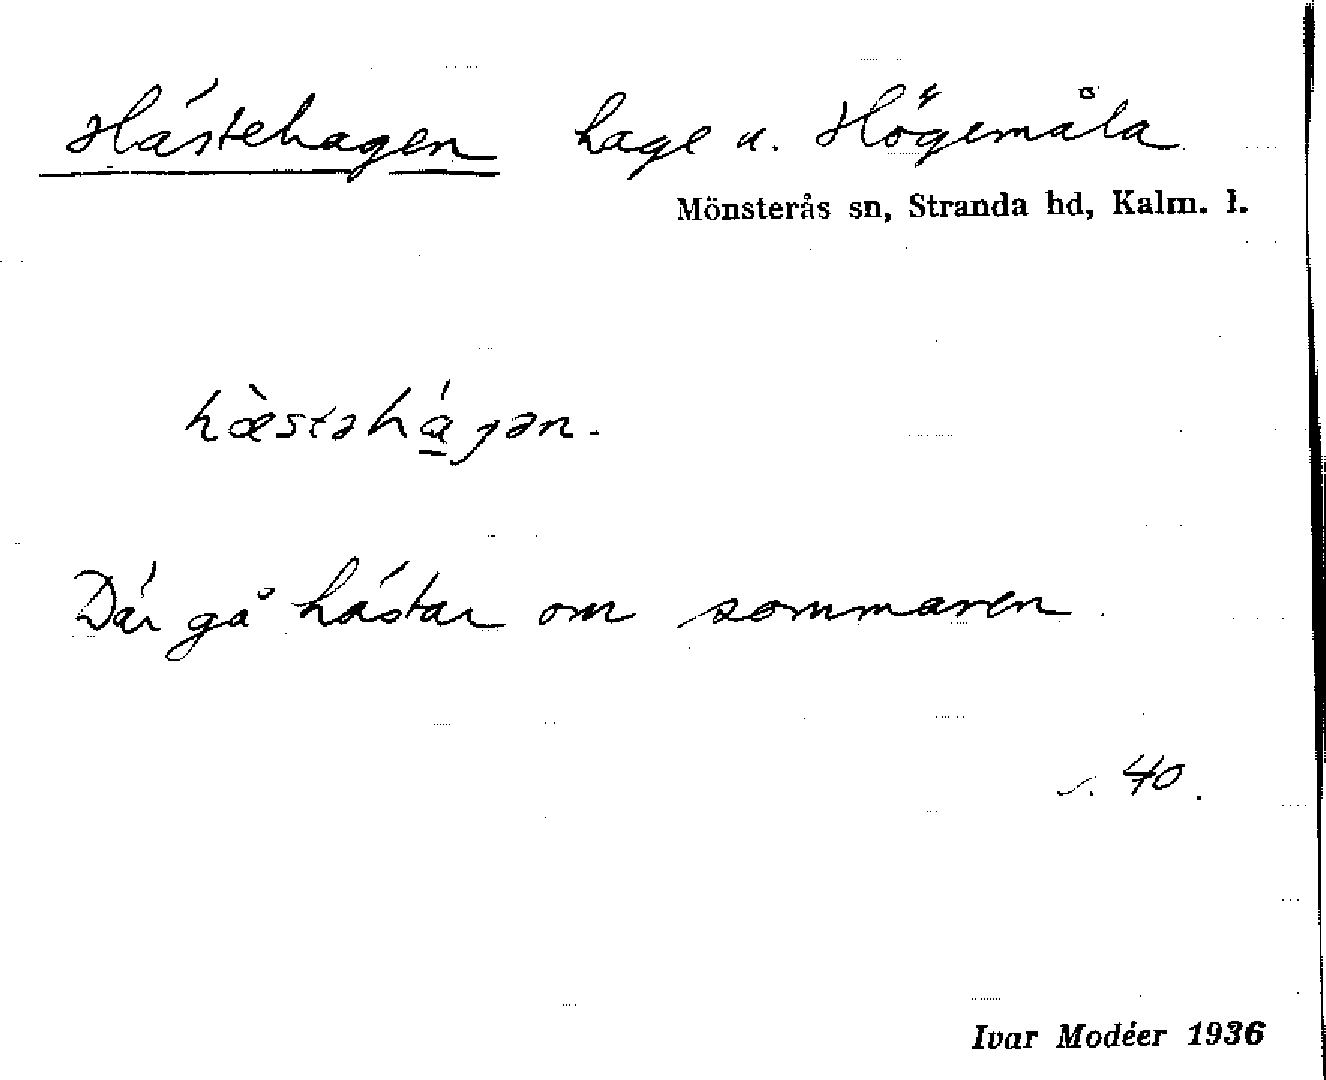 Hästehagen hage u. Högemåla
Mönsterås sn, Stranda hd, Kalm. l.
hæ̀stəhá̱gən.
Där gå hästar om sommaren.
s. 40.
Ivar Modéer 1936